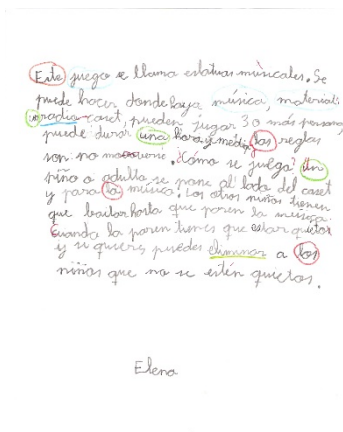 Este juego se llama estatuas músicales. Se
puede hacer donde haya música, material:
un radio-caset, pueden jugar 3 o más personas,
puede durar una hora y media, las reglas
son no moverse. ¿Cómo se juega? Un
niño o adulto se pone al lado del caset
y para la música. Los otros niños tienen
que bailar hasta que paren la música.
Cuando la paren tienes que estar quietos
y si quieres puedes eliminar a los
niños que no se estén quietos.
Elena